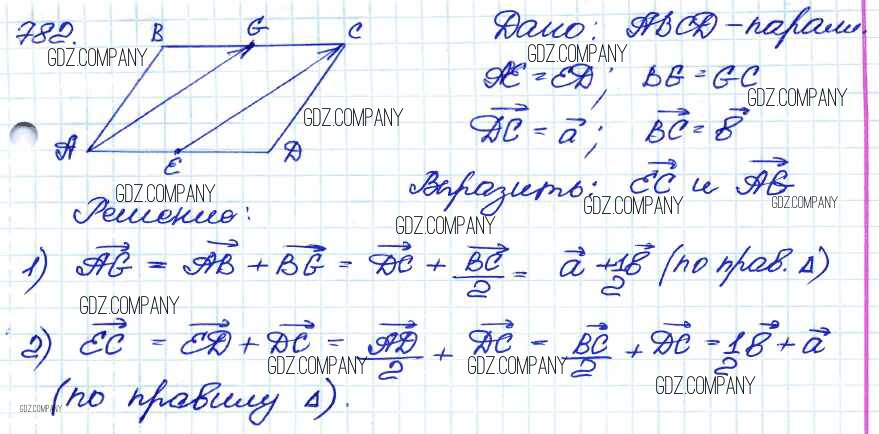 782.
B G C
A E D
Дано: ABCD – парал.
AE = ED; BG = GC
DC = a; BC = b
Выразить: EC и AG
Решение:
1) AG = AB + BG = DC + BC/2 = a + 1/2 b (по прав. Δ)
2) EC = ED + DC = AD/2 + DC = BC/2 + DC = 1/2 b + a
(по правилу Δ).
GDZ.COMPANY
GDZ.COMPANY
GDZ.COMPANY
GDZ.COMPANY
GDZ.COMPANY
GDZ.COMPANY
GDZ.COMPANY
GDZ.COMPANY
GDZ.COMPANY
GDZ.COMPANY
GDZ.COMPANY
GDZ.COMPANY
GDZ.COMPANY